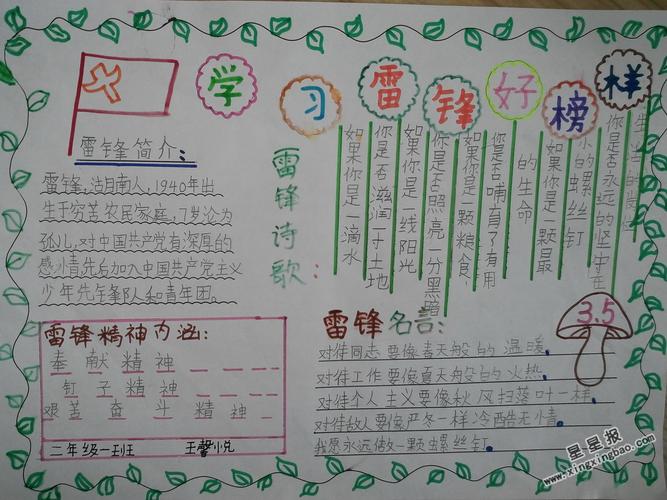 学习雷锋好榜样
雷锋简介:
雷锋,湖南人,1940年出
生于穷苦农民家庭,7岁沦为
孤儿,对中国共产党有深厚的
感情,先后加入中国共产党主义
少年先锋队和青年团。
雷锋诗歌:
如果你是一滴水
你是否滋润一寸土地
如果你是一线阳光
你是否照亮一分黑暗
如果你是一颗粮食,
你是否哺育了有用
的生命
如果你是一颗最
小的螺丝钉
你是否永远的坚守在
生活的岗位
雷锋精神内涵:
奉献精神
钉子精神
艰苦奋斗精神
二年级一班 王馨悦
3.5
雷锋名言:
对待同志要像春天般的温暖。
对待工作要像夏天般的火热。
对待个人主义要像秋风扫落叶一样。
对待敌人要像严冬一样冷酷无情。
我愿永远做一颗螺丝钉。
星星报
www.xingxingbao.com